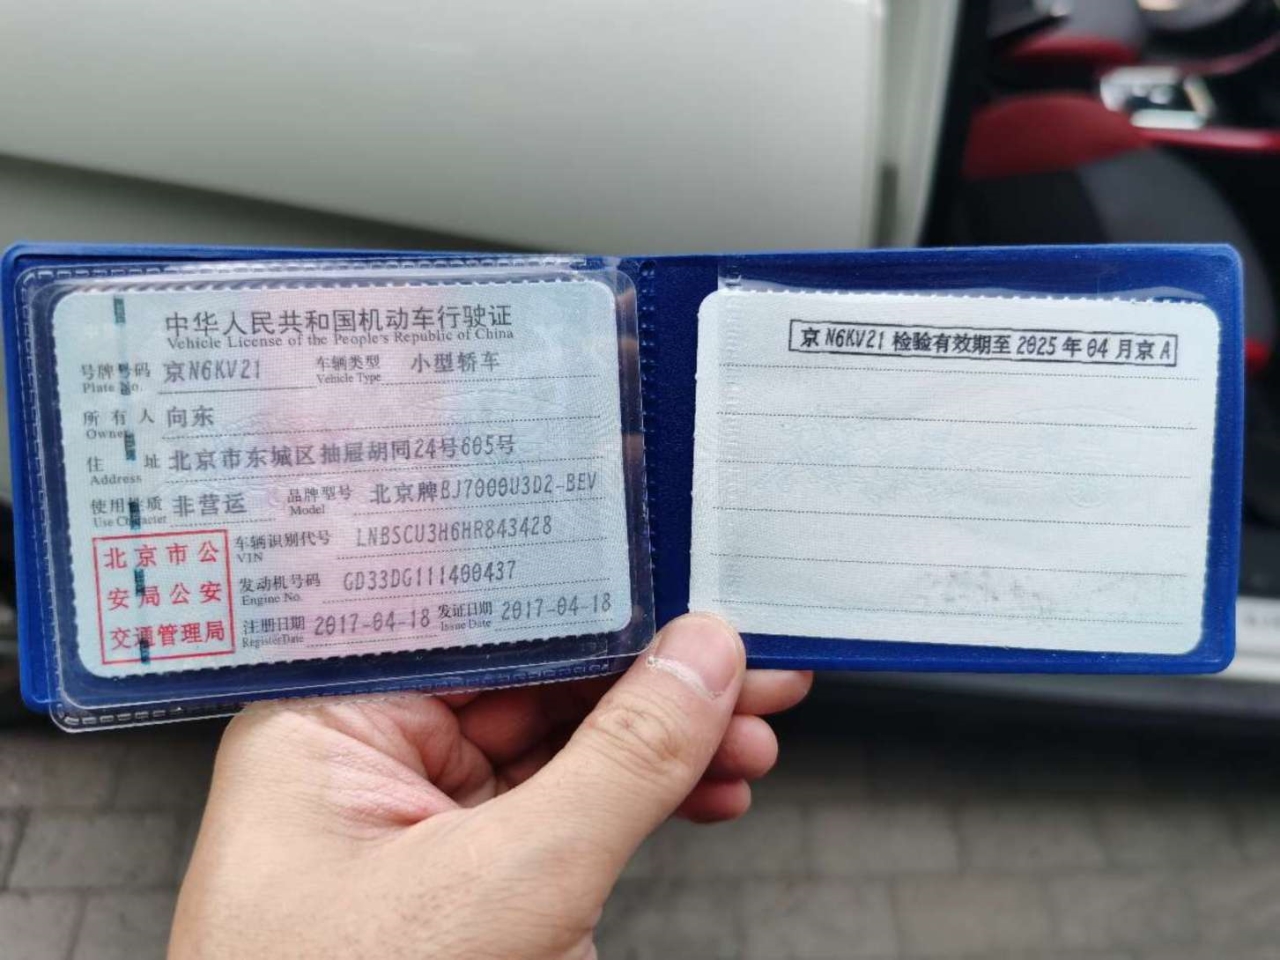 中华人民共和国机动车行驶证
Vehicle License of the People's Republic of China
号牌号码 京N6KV21 车辆类型 小型轿车
Plate No. Vehicle Type
所有人 向东
Owner
住址 北京市东城区抽屉胡同24号605号
Address
使用性质 非营运 品牌型号 北京牌BJ7000U3D2-BEV
Use Character Model
车辆识别代号 LNBSCU3H6HR843428
VIN
发动机号码 GD33DG111400437
Engine No.
注册日期 2017-04-18 发证日期 2017-04-18
Register Date Issue Date
北京市公
安局公安
交通管理局
京N6KV21 检验有效期至2025年04月京A